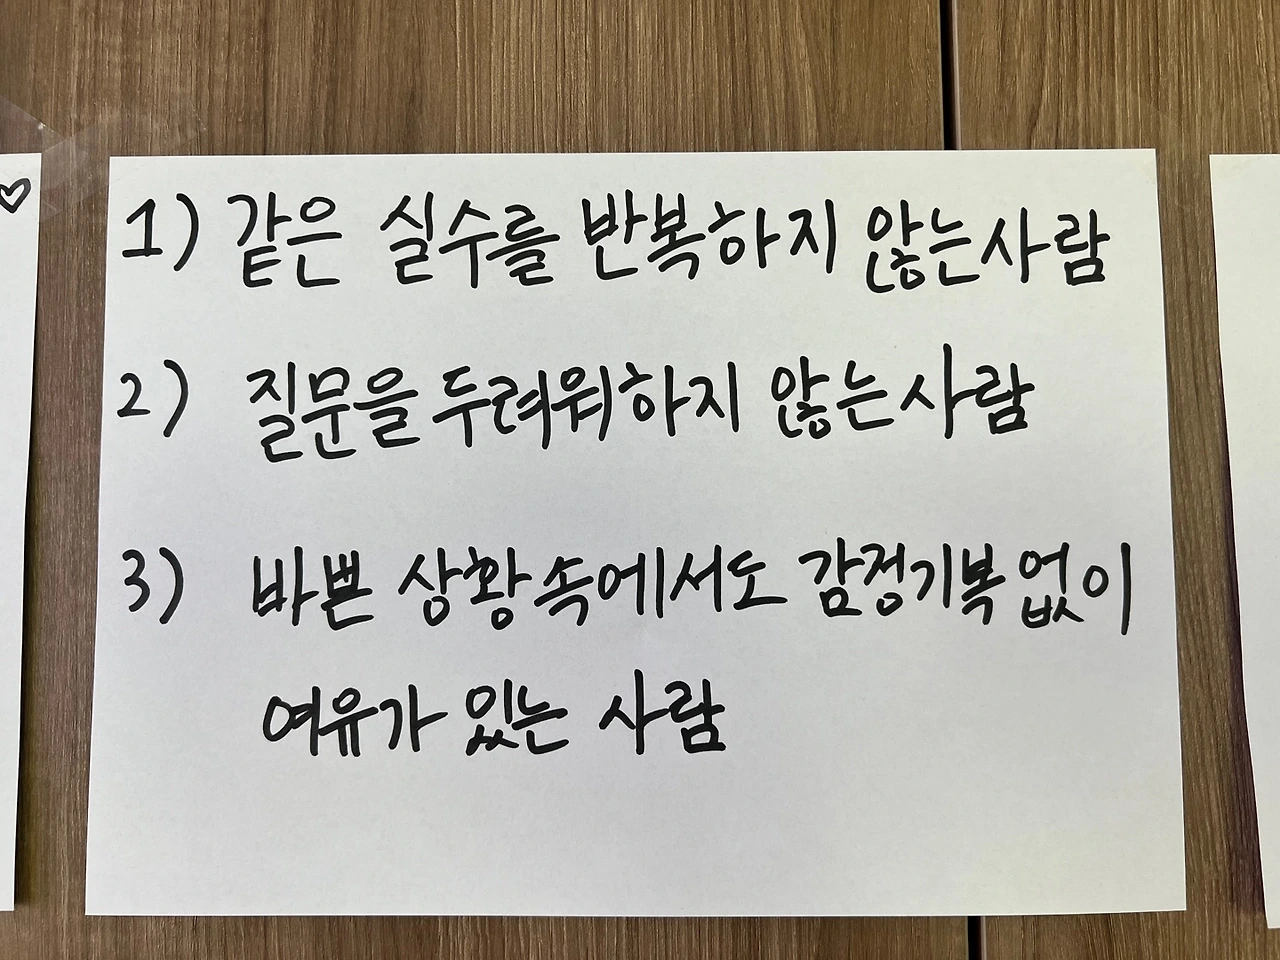 1) 같은 실수를 반복하지 않는사람
2) 질문을 두려워하지 않는사람
3) 바쁜 상황속에서도 감정기복없이
여유가 있는 사람